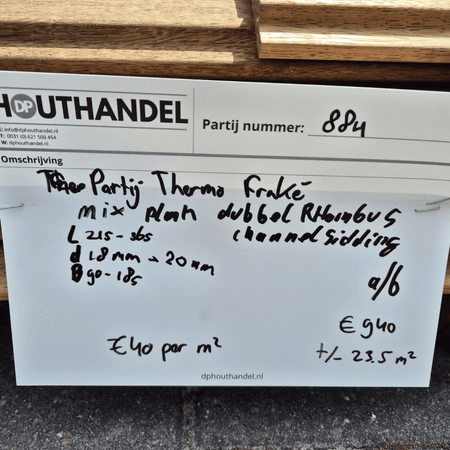 HOUTHANDEL
DP
info@dphouthandel.nl
T: 0031 (0) 621 500 454
W: dphouthandel.nl
Partij nummer: 884
Omschrijving
Partij Thermo Fraké
mix plank dubbel Rhombus
channel sidding
L 215-365
d 18 mm - 20 mm
B 90-185
a/b
€ 940
€40 per m²
+/- 23.5 m²
dphouthandel.nl